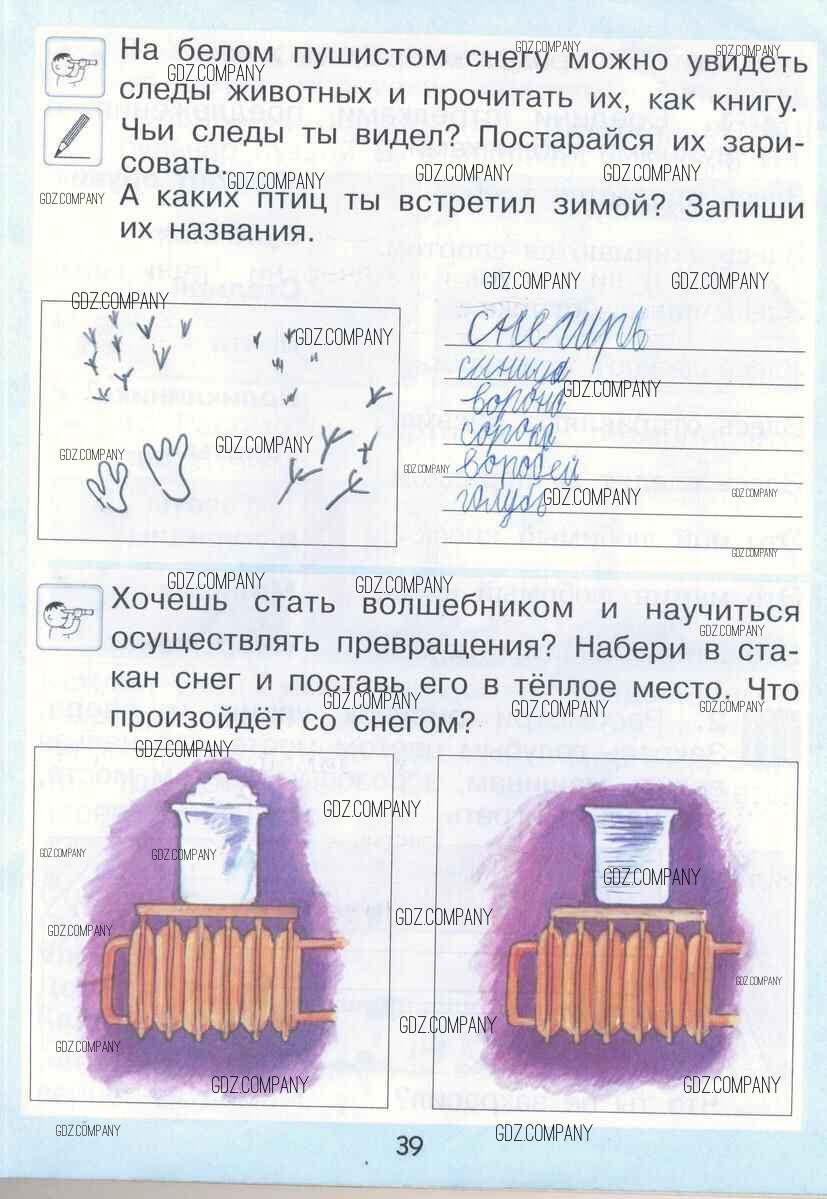 На белом пушистом снегу можно увидеть
следы животных и прочитать их, как книгу.
Чьи следы ты видел? Постарайся их зари-
совать.
А каких птиц ты встретил зимой? Запиши
их названия.
снегирь
синица
ворона
сорока
воробей
голубь
Хочешь стать волшебником и научиться
осуществлять превращения? Набери в ста-
кан снег и поставь его в тёплое место. Что
произойдёт со снегом?
39
GDZ.COMPANY